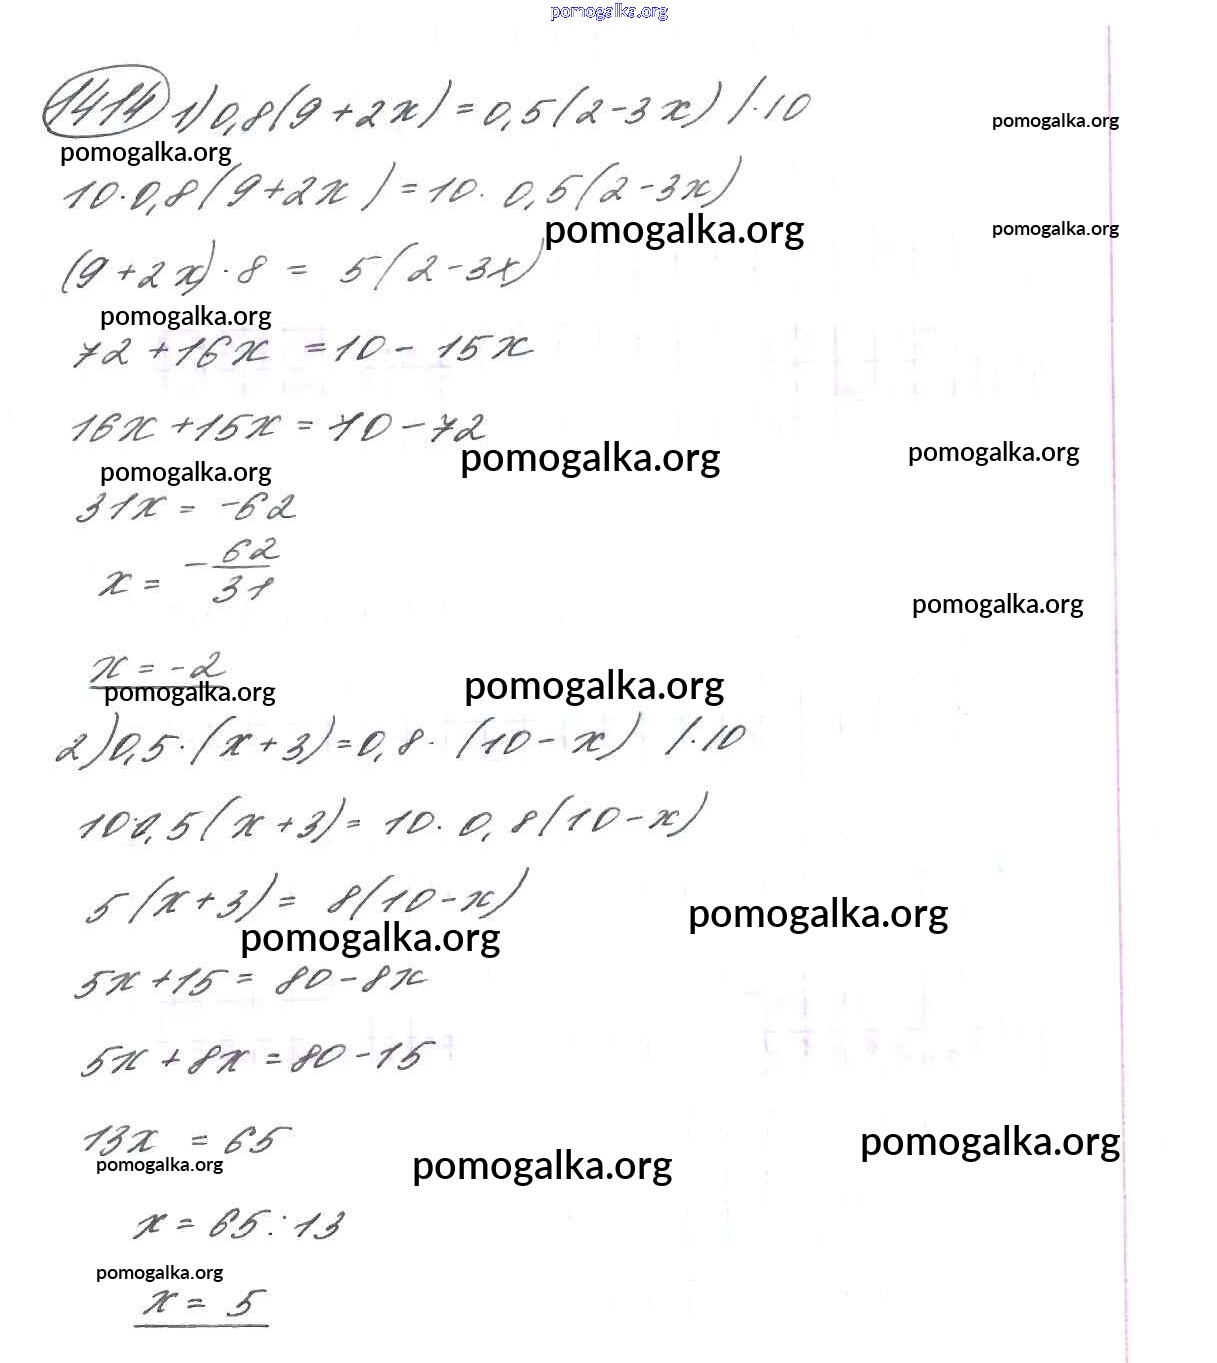 pomogalka.org
1414 1) 0,8(9+2x) = 0,5(2-3x) /·10
pomogalka.org
pomogalka.org
10·0,8(9+2x) = 10· 0,5(2-3x)
pomogalka.org
pomogalka.org
(9+2x)·8 = 5(2-3x)
pomogalka.org
72+16x =10- 15x
16x+15x=10-72
pomogalka.org
pomogalka.org
pomogalka.org
31x = -62
x = -62/31
pomogalka.org
x = -2
pomogalka.org
pomogalka.org
2) 0,5·(x+3)=0,8· (10-x) /·10
10·0,5(x+3)= 10· 0,8(10-x)
5(x+3)= 8(10-x)
pomogalka.org
pomogalka.org
5x+15= 80-8x
5x+8x=80-15
13x = 65
pomogalka.org
pomogalka.org
pomogalka.org
x=65:13
pomogalka.org
x= 5